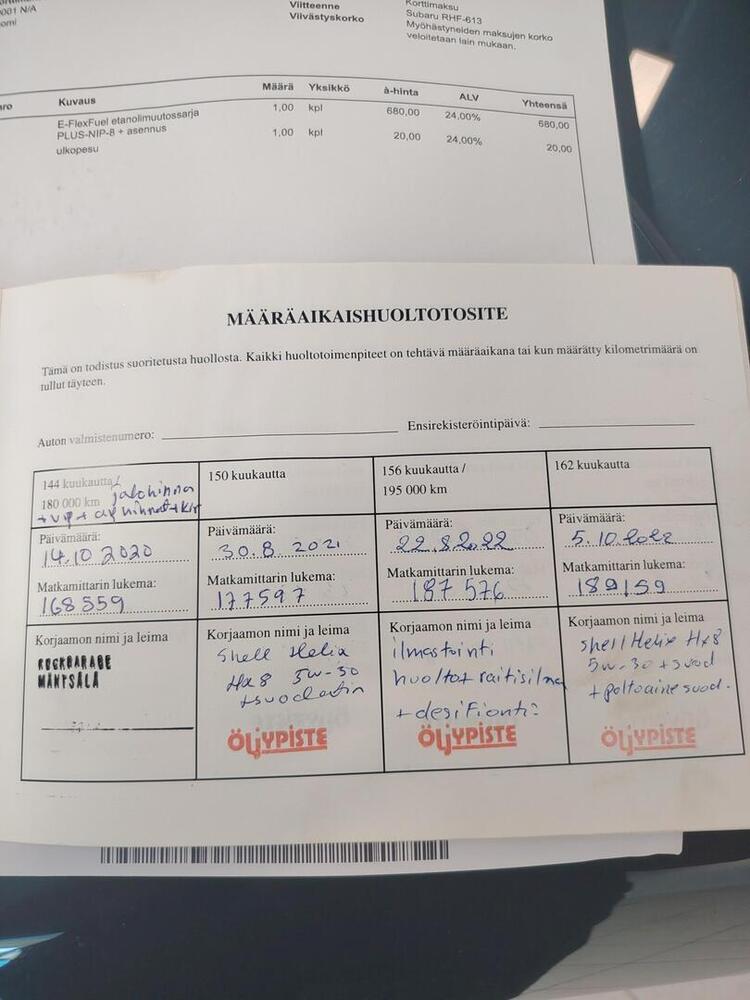 001 N/A
omi
Viitteenne
Viivästyskorko
Korttimaksu
Subaru RHF-613
Myöhästyneiden maksujen korko
veloitetaan lain mukaan.
Kuvaus Määrä Yksikkö à-hinta ALV Yhteensä
E-FlexFuel etanolimuutossarja 1,00 kpl 680,00 24,00% 680,00
PLUS-NIP-8 + asennus
ulkopesu 1,00 kpl 20,00 24,00% 20,00
MÄÄRÄAIKAISHUOLTOTOSITE
Tämä on todistus suoritetusta huollosta. Kaikki huoltotoimenpiteet on tehtävä määräaikana tai kun määrätty kilometrimäärä on
tullut täyteen.
Auton valmistenumero: Ensirekisteröintipäivä:
144 kuukautta/
180 000 km jakohinna
Päivämäärä:
14.10 2020
Matkamittarin lukema:
168559
Korjaamon nimi ja leima
MÄNTSÄLÄ
150 kuukautta
Päivämäärä:
30.8 2021
Matkamittarin lukema:
177597
Korjaamon nimi ja leima
Shell Helix
Hx8 5w-30
+suodatin
ÖLJYPISTE
156 kuukautta /
195 000 km
Päivämäärä:
22.8.2022
Matkamittarin lukema:
187 576
Korjaamon nimi ja leima
ilmastointi
huolto+raitisilma
+desifionti
ÖLJYPISTE
162 kuukautta
Päivämäärä:
5.10.2022
Matkamittarin lukema:
189159
Korjaamon nimi ja leima
shell Helix Hx8
5w-30 + suod
+poltoainesuod.
ÖLJYPISTE